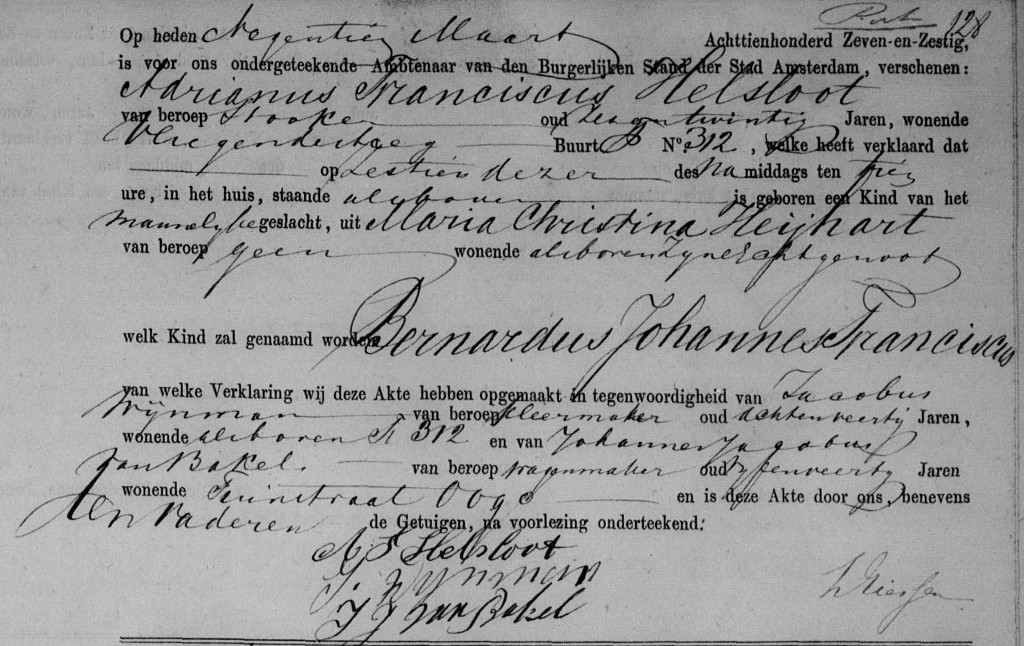 128
Op heden Negentien Maart Achttienhonderd Zeven-en-Zestig,
is voor ons ondergeteekende Ambtenaar van den Burgerlijken Stand der Stad Amsterdam, verschenen:
Adrianus Franciscus Helsloot
van beroep Stooker oud zesentwintig Jaren, wonende
Vliegendesteeg Buurt P Nº 312, welke heeft verklaard dat
op zestien dezer des Na middags ten tien
ure, in het huis, staande alsboven is geboren een Kind van het
mannelyke geslacht, uit Maria Christina Heijhart
van beroep geen wonende alsboven zyne Echtgenoot
welk Kind zal genaamd worden Bernardus Johannes Franciscus
van welke Verklaring wij deze Akte hebben opgemaakt in tegenwoordigheid van Jacobus
Wynman van beroep kleermaker oud achtenveertig Jaren,
wonende alsboven 312 en van Johannes Jacobus
van Bakel. van beroep wagenmaker oud vyfenveertig Jaren
wonende Tuinstraat en is deze Akte door ons, benevens
den Vader en de Getuigen, na voorlezing onderteekend.
A F Helsloot
J Wynman
J J van Bakel